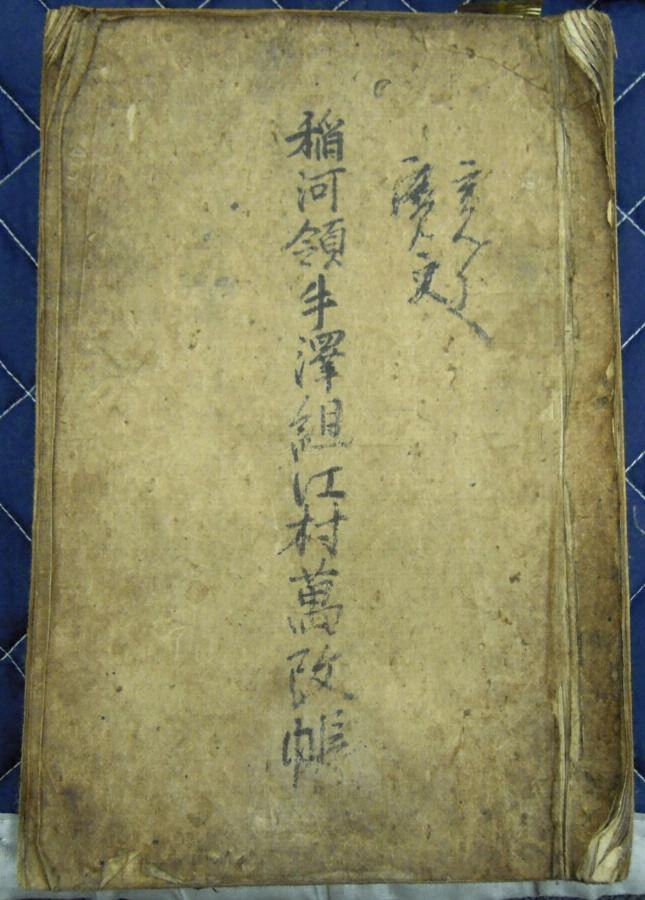 稲河領牛澤組江村萬改帳